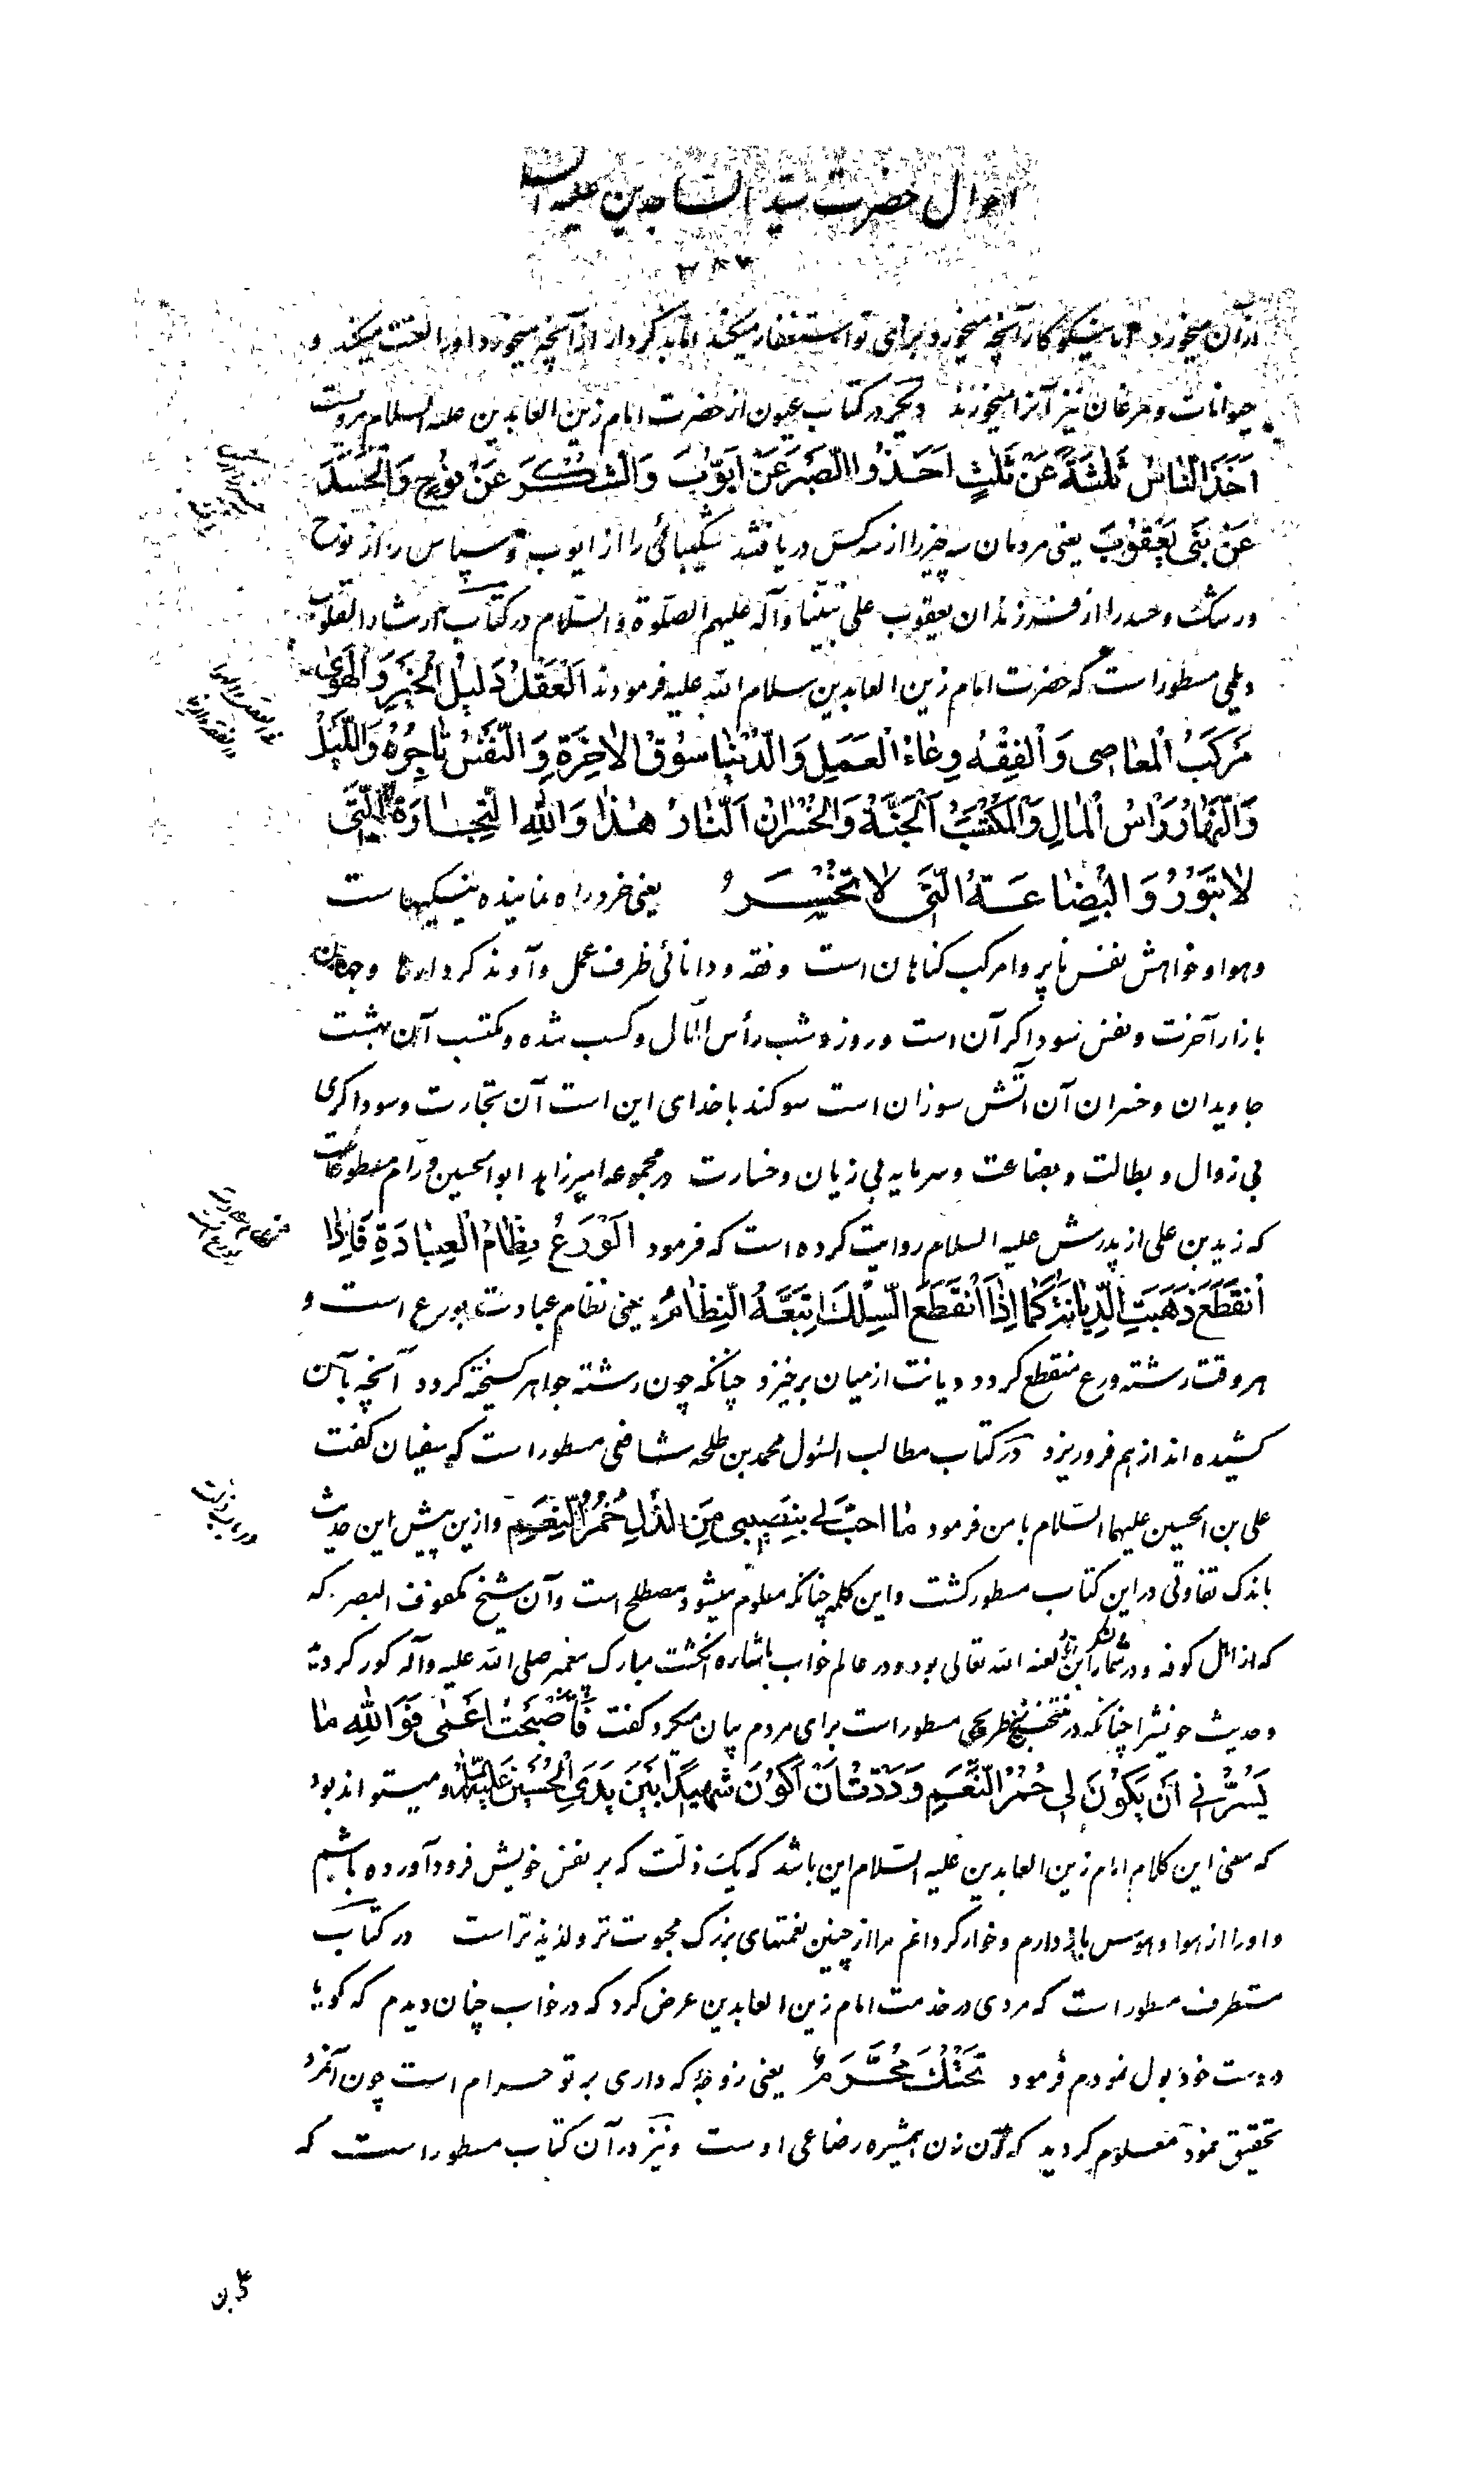 احوال حضرت سید الساجدین علیه السلام
۳۸۲
از آن میخورد اما نیکوکار آنچه میخورد برای تو استغفار میکند اما بدکردار از آنچه میخورد او را لعنت میکند و
حیوانات و مرغان نیز آنرا میخورند دیگر در کتاب عیون از حضرت امام زین العابدین علیه السلام مرویست
اَخَذَ النّاسُ ثَلثَةً عَنْ ثَلثٍ اَخَذُوا الصَّبْرَ عَنْ اَیّوُبَ وَالشُّکْرَ عَنْ نوُحٍ وَالْحَسَدَ
عَنْ بَنی یَعْقوُبَ یعنی مردمان سه چیز را از سه کس دریافتند شکیبائی را از ایوب و سپاس را از نوح
و رشک و حسد را از فرزندان یعقوب علی نبینا وآله علیهم الصلوة والسلام در کتاب ارشاد القلوب
دیلمی مسطور است که حضرت امام زین العابدین سلام الله علیه فرمودند اَلْعَقْلُ دَلیلُ الْخَیْرِ وَالْهَوی
مَرْکَبُ الْمَعاصی وَالْفِقْهُ وِعاءُ الْعَمَلِ وَالدُّنْیا سوُقُ الاخِرَةِ وَالنَّفْسُ تاجِرُهُ وَاللَّیْلُ
وَالنَّهارُ رَاْسُ الْمالِ وَالْمَکْسَبُ اَلْجَنَّةُ وَالْخُسْرانُ اَلنّارُ هذا وَاللهِ التِّجارَةُ الَّتی
لا تَبوُرُ وَالْبِضاعَةُ الَّتی لا تَخْسَرُ یعنی خرد راه نماینده نیکیهاست
و هوا و خواهش نفس ناپروا مرکب گناهان است و فقه و دانائی ظرف عمل و آوند کردارها و جهان
بازار آخرت و نفس سوداگر آن است و روز و شب رأس المال و کسب شده و مکتسب آن بهشت
جاویدان و خسران آن آتش سوزان است سوگند با خدای این است آن تجارت و سوداگری
بی زوال و بطالت و بضاعت و سرمایه بی زیان و خسارت در مجموعه امیر زاهد ابوالحسین ورام مسطور است
که زید بن علی از پدرش علیه السلام روایت کرده است که فرمود اَلْوَرَعُ نِظامُ الْعِبادَةِ فَاِذا
اَنْقَطَعَ ذَهَبَتِ الدِّیانَةُ کَما اِذَا اَنْقَطَعَ السِّلْکُ اِتَّبَعَهُ النِّظامُ یعنی نظام عبادت بورع است و
هر وقت رشته ورع منقطع گردد دیانت از میان برخیزد چنانکه چون رشته جواهر گسیخته گردد آنچه بآن
کشیده اند از هم فرو ریزد در کتاب مطالب السئول محمد بن طلحه شافعی مسطور است که سفیان گفت
علی بن الحسین علیهما السلام با من فرمود ما احبّ لی بنصیبی مِنَ الذُّلِ حُمْرُ النِّعَمِ و ازین پیش این حدیث
باندک تفاوتی در این کتاب مسطور گشت و این کلمه چنانکه معلوم میشود مصطلح است و آن شیخ مکفوف البصر که
که از اهل کوفه و در شمار لشکر ابن زیاد لعنه الله تعالی بود و در عالم خواب باشاره انگشت مبارک پیغمبر صلی الله علیه وآله کور گردید
و حدیث خویشرا چنانکه در منتخب شیخ طریحی مسطور است برای مردم بیان میکرد گفت فَاَصْبَحْتُ اَعْمی فَوَاللهِ ما
یَسُرُّنی اَنْ یَکوُنَ لی حُمْرُ النَّعَمِ وَوَدَدْتُ اَنْ اَکوُنَ شَهیداً بَیْنَ یَدَیِ الْحُسَیْنِ عَلَیْهِ السَّلام و میتواند بود
که معنی این کلام امام زین العابدین علیه السلام این باشد که یک ذلت که بر نفس خویش فرود آورده باشم
و او را از هوا و هوس باز دارم و خوار گردانم مرا از چنین نعمتهای بزرگ محبوب تر و لذیذ تر است در کتاب
مستطرف مسطور است که مردی در خدمت امام زین العابدین عرض کرد که در خواب چنان دیدم که گویا
در دست خود بول نمودم فرمود تَحْتَکَ مَحْرَمٌ یعنی زوجۀ که داری بر تو حرام است چون آنمرد
تحقیق نمود معلوم گردید که آن زن همشیره رضاعی اوست و نیز در آن کتاب مسطور است که
علی بن